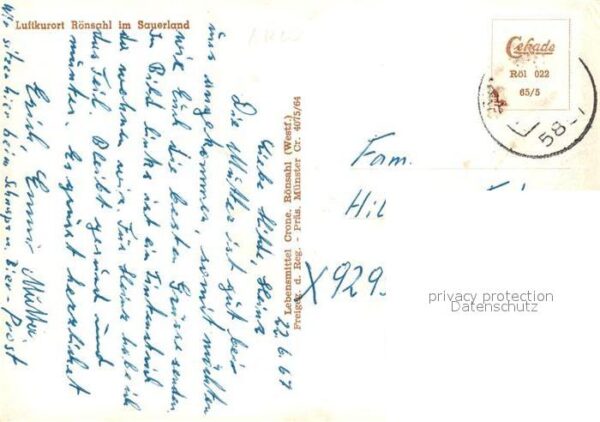 Luftkurort Rönsahl im Sauerland
22.6.67
Liebe Hilde, Heinz
Die Mutter ist gut bei
uns angekommen, somit möchten
wir Euch die besten Grüsse senden.
Im Bild links ist ein Tintenstrich
da wohnen wir. Für Heinz habe ich
das Teil. Bleibt gesund und
munter. Es grüsst herzlichst
Erich, Emmi Mutter.
Wir sitzen hier beim Schnaps u. Bier - Prost
Lebensmittel Crone, Rönsahl (Westf.)
Freigeg. d. Reg. - Präs. Münster Cr. 4075/64
Cekade
Röl 022
65/5
58
Fam.
Hil
X929
privacy protection
Datenschutz